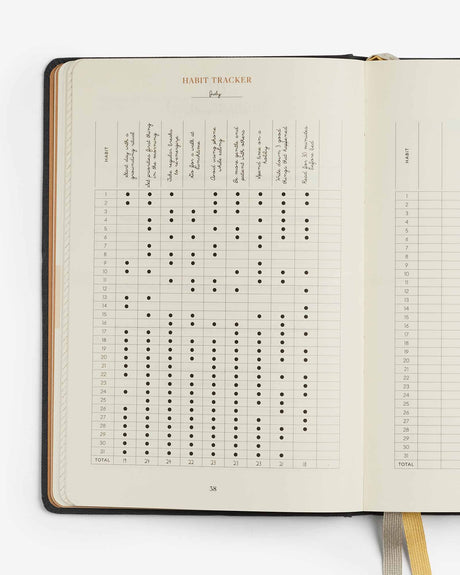 HABIT TRACKER
July
HABIT
Start day with a grounding ritual
Set priorities first thing in the morning
Take regular breaks to reenergize
Go for a walk at lunchtime
Avoid using phone while eating
Be more gentle and patient with others
Spend time on a hobby
Write down 3 good things that happened
Read for 30 minutes before bed
HABIT
1
2
3
4
5
6
7
8
9
10
11
12
13
14
15
16
17
18
19
20
21
22
23
24
25
26
27
28
29
30
31
TOTAL
1
2
3
4
5
6
7
8
9
10
11
12
13
14
15
16
17
18
19
20
21
22
23
24
25
26
27
28
29
30
31
TOTAL
38